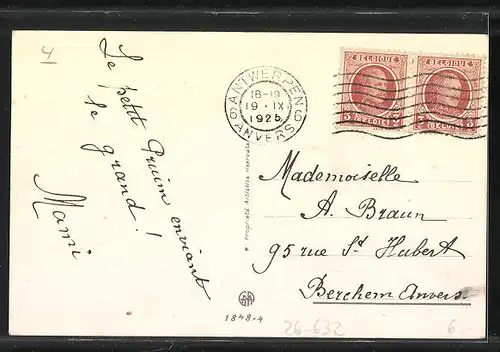 4
Le petit Pruim enviant
le grand !
Mami
6 ANTWERPEN 6
18-19
19 · IX
1925
ANVERS
BELGIQUE
3 BELGIË 3
BELGIQUE
3 BELGIË 3
Mademoiselle
A. Braun
95 rue St Hubert
Berchem Anvers.
Proprietà Artistica Riservata
1848-4
26-632
6.-